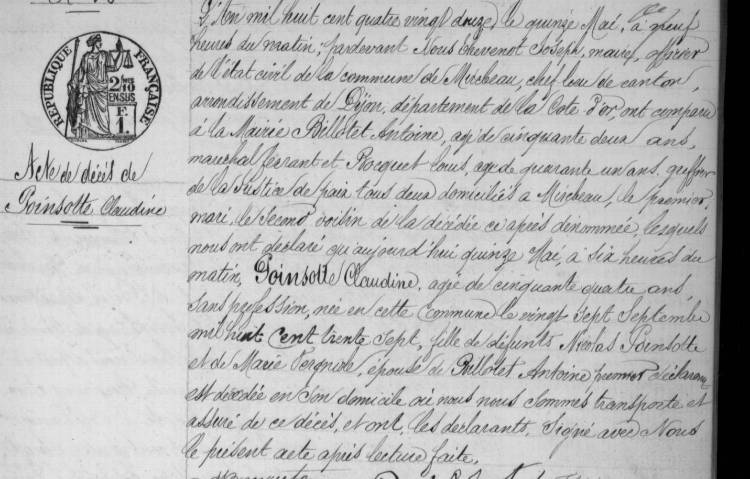 RÉPUBLIQUE FRANÇAISE
2/10
EN SUS
F.
1.
Acte de décès de
Poinsotte Claudine
L'An mil huit cent quatre vingt douze, le quinze Mai, à neuf
heures du matin, pardevant Nous Chevenot Joseph, maire, officier
de l'état civil de la commune de Mirebeau, chef lieu de canton,
arrondissement de Dijon, département de la Côte d'or, ont comparu
à la Mairie Billotet Antoine, agé de cinquante deux ans,
maréchal ferrant et Rocquet Louis, agé de quarante un ans, greffier
de la Justice de paix tous deux domiciliés à Mirebeau, le premier,
mari, le second voisin de la décédée ci après dénommée, lesquels
nous ont déclaré qu'aujourd'hui quinze Mai, à six heures du
matin, Poinsotte Claudine, agée de cinquante quatre ans,
sans profession, née en cette commune le vingt sept Septembre
mil huit cent trente sept, fille de défunts Nicolas Poinsotte
et de Marie, épouse de Billotet Antoine premier déclarant
est décédée en son domicile où nous nous sommes transporté et
assuré de ce décès, et ont, les déclarants, signé avec Nous
le présent acte après lecture faite.